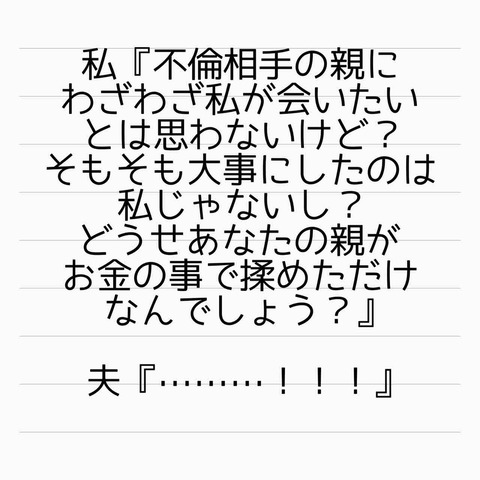 私『不倫相手の親に
わざわざ私が会いたい
とは思わないけど？
そもそも大事にしたのは
私じゃないし？
どうせあなたの親が
お金の事で揉めただけ
なんでしょう？』
夫『………！！！』